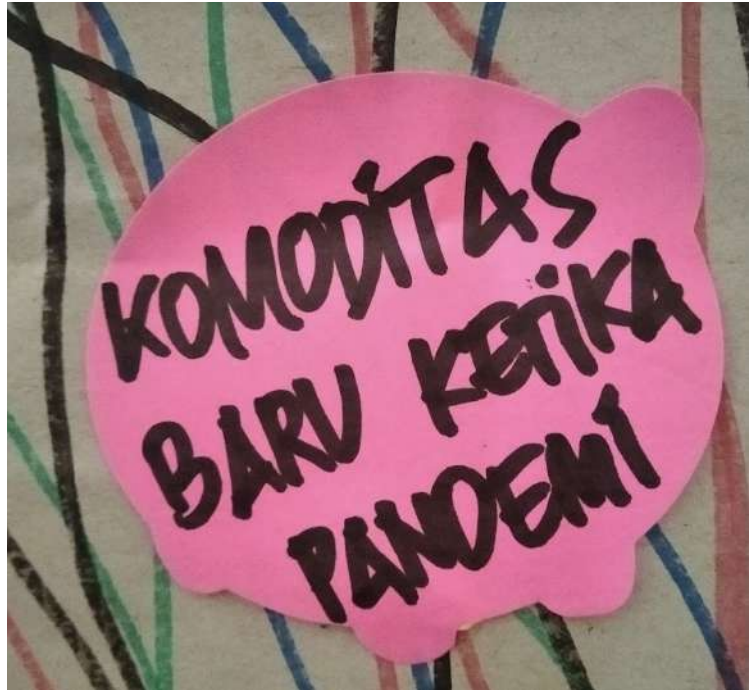 KOMODITAS
BARU KETIKA
PANDEMI